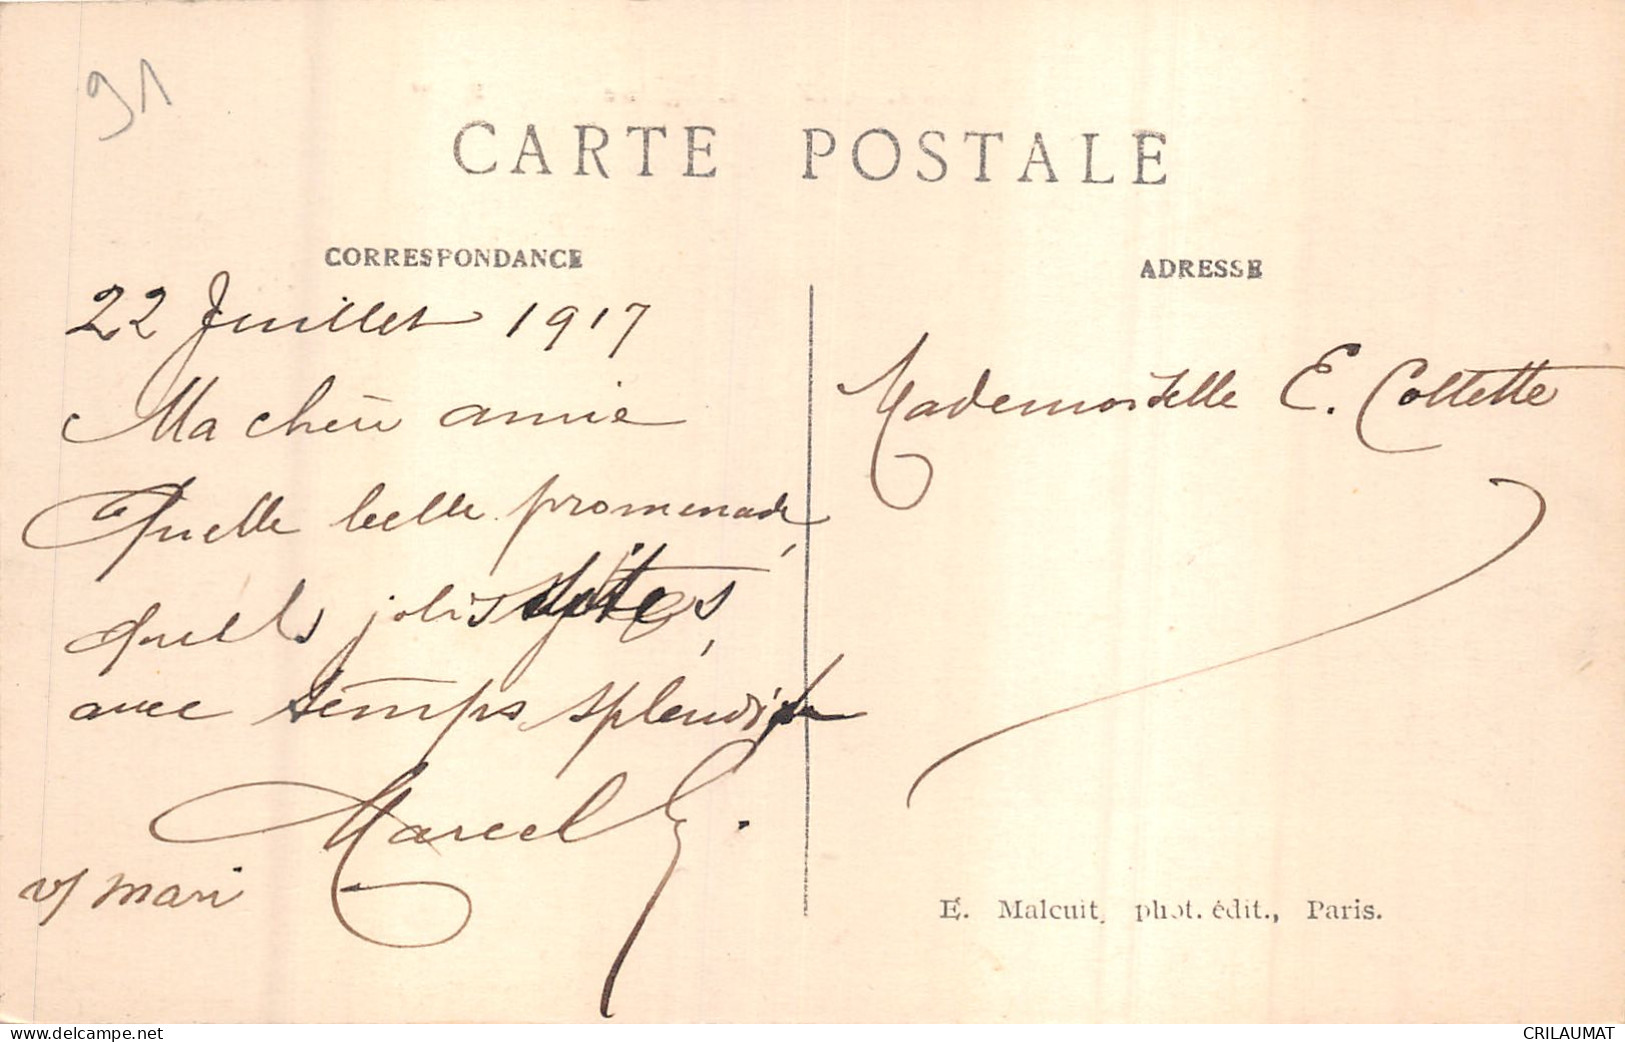 91
CARTE POSTALE
CORRESPONDANCE
22 Juillet 1917
Ma chère amie
Quelle belle promenade,
quels jolis sites,
avec temps splendide
Marcel
v/ mari
ADRESSE
Mademoiselle E. Collette
E. Malcuit, phot. édit., Paris.
www.delcampe.net
CRILAUMAT